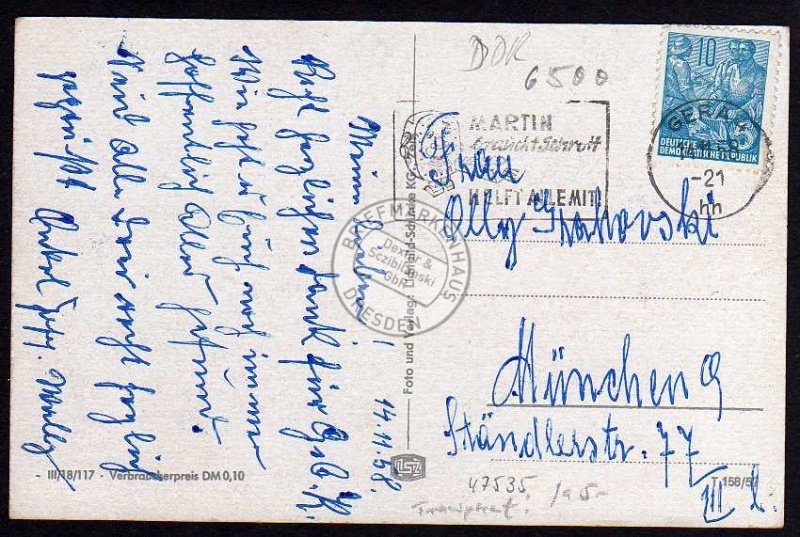 Meine Lieben!
14.11.58.
Recht herzlichen Dank für Geb. K.
Wie geht es Euch noch immer
hoffentlich Alles gesund.
Seid Alle drei recht herzlich
gegrüßt Onkel
DDR
6500
MARTIN
braucht Schrott
HELFT ALLE MIT!
10
DEUTSCHE
DEMOKRATISCHE REPUBLIK
GERA
-21
hh
Frau
Olly
München 9
Ständlerstr. 77
III l.
BRIEFMARKENHAUS
Dexler &
GbR
DRESDEN
Foto und Verlag:
III/18/117 - Verbraucherpreis DM 0,10
T 158/57
47535
Transport.